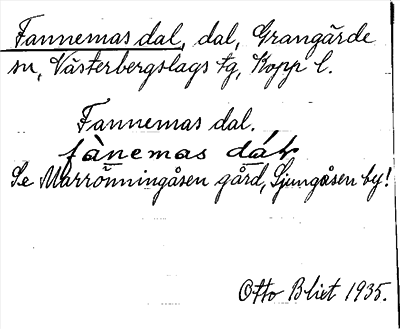 Fannemas dal, dal, Grangärde
sn, Västerbergslags tg, Kopp l.
Fannemas dal.
fànemas dáɫ
Se Marrönningåsen gård, Ljungåsen by!
Otto Blixt 1935.